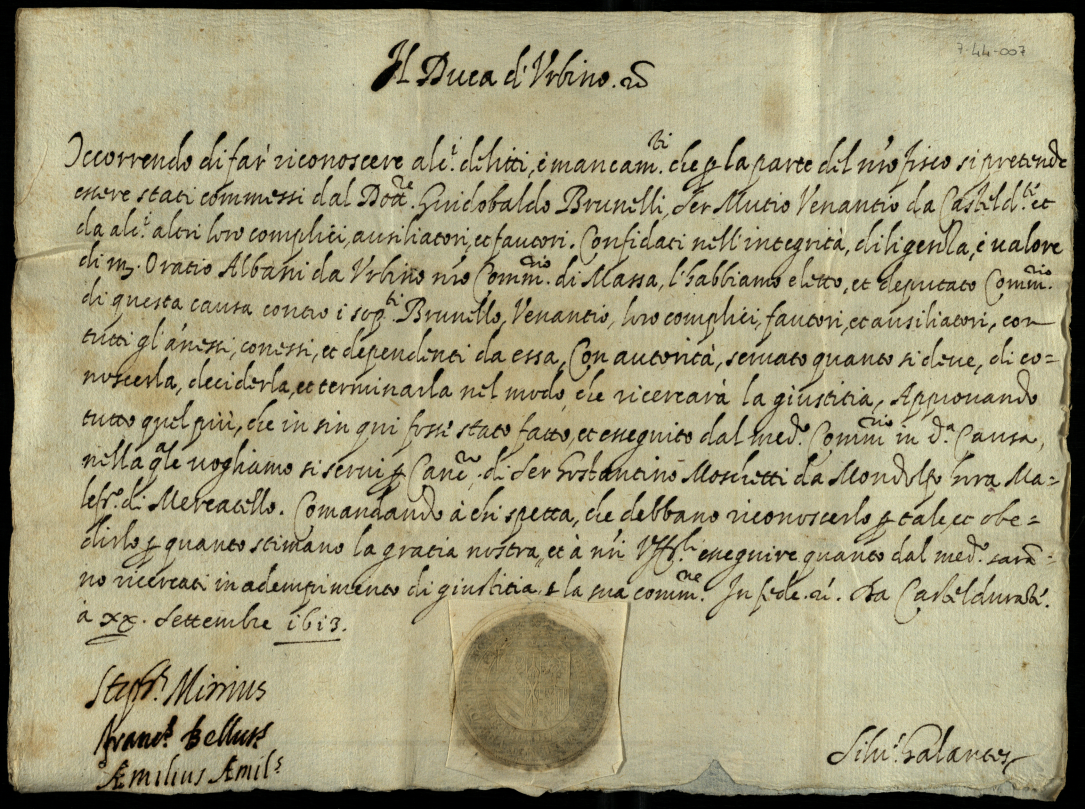 7-44-007
Il Duca d'Urbino. &
Occorrendo di far' riconoscere alc.i delitti, è mancam.ti che p la parte del nr̃o fisco si pretende
essere stati commessi dal Dott.re Guidobaldo Brunelli, ser Mutio Venantio da Casteld.te et
da alc.i altri loro complici, ausiliatori, et fautori. Confidati nell'integrità, diligenza, è valore
di m. Oratio Albani da Urbino nr̃o Comm.rio di Massa, l'habbiamo eletto, et deputato Comm.rio
di questa causa contro i sop.ti Brunello, Venantio, loro complici, fautori, et ausiliatori, con
tutti gl'anessi, conessi, et dependenti da essa, Con autorità, servato quanto si deve, di co=
noscerla, deciderla, et terminarla nel modo, che ricercarà la giustitia, Approvando
tutto quel più, che in sin qui fosse stato fatto, et eseguito dal med.o Comm.rio in d.a Causa,
nella qle vogliamo si servi p Canc.re di ser Costantino Moschetti da Mondolfo hora Ma=
lef.o di Mercatello. Comandando à chi spetta, che debbano riconoscerlo p tale, et obe=
dirlo p quanto stimano la gratia nostra, et à nr̃i Uff.li eseguire quanto dal med.o saran=
no ricercati in adempimento di giustitia, e la sua comm.ne. In fede &. Da Casteldurante.
à XX. Settembre 1613.
Steph.s
Franc.s Bellus
Æmilius Æmil.s
Silv.